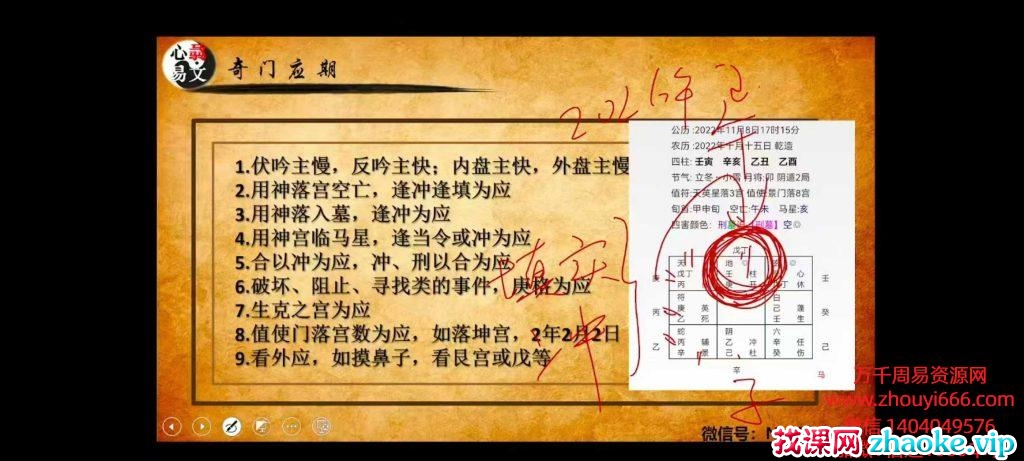 心易
文
奇门应期
2026年
午
公历:2022年11月8日17时15分
农历:2022年十月十五日 乾造
四柱:壬寅 辛亥 乙丑 乙酉
节气:立冬-小雪 月将:卯 阴遁2局
值符:天英星落3宫 值使:景门落8宫
旬首:甲申旬 空亡:午未 马星:亥
四害颜色:
1.伏吟主慢，反吟主快；内盘主快，外盘主慢
2.用神落宫空亡，逢冲逢填为应
3.用神落入墓，逢冲为应
4.用神宫临马星，逢当令或冲为应
5.合以冲为应，冲、刑以合为应
6.破坏、阻止、寻找类的事件，庚格为应
7.生克之宫为应
8.值使门落宫数为应，如落坤宫，2年2月2日
9.看外应，如摸鼻子，看艮宫或戊等
填实
冲
戊丁
天 地
戊丁 壬 柱 心
丙 庚 开 丁 休
庚 壬
符 白
庚 英 己 蓬
乙 死 壬 生
丙 癸
蛇 阴 六
丙 辅 乙 冲 辛 任
辛 景 己 杜 癸 伤
乙 己
辛 马
子
万千周易资源网
www.zhouyi666.com
信 1404049576
微信号：
找课网 zhaoke.vip